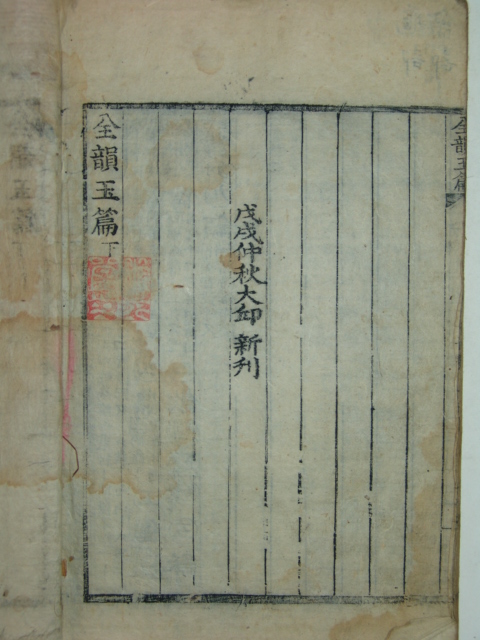 全韻玉篇
戊戌仲秋大邱 新刊
全韻玉篇 下